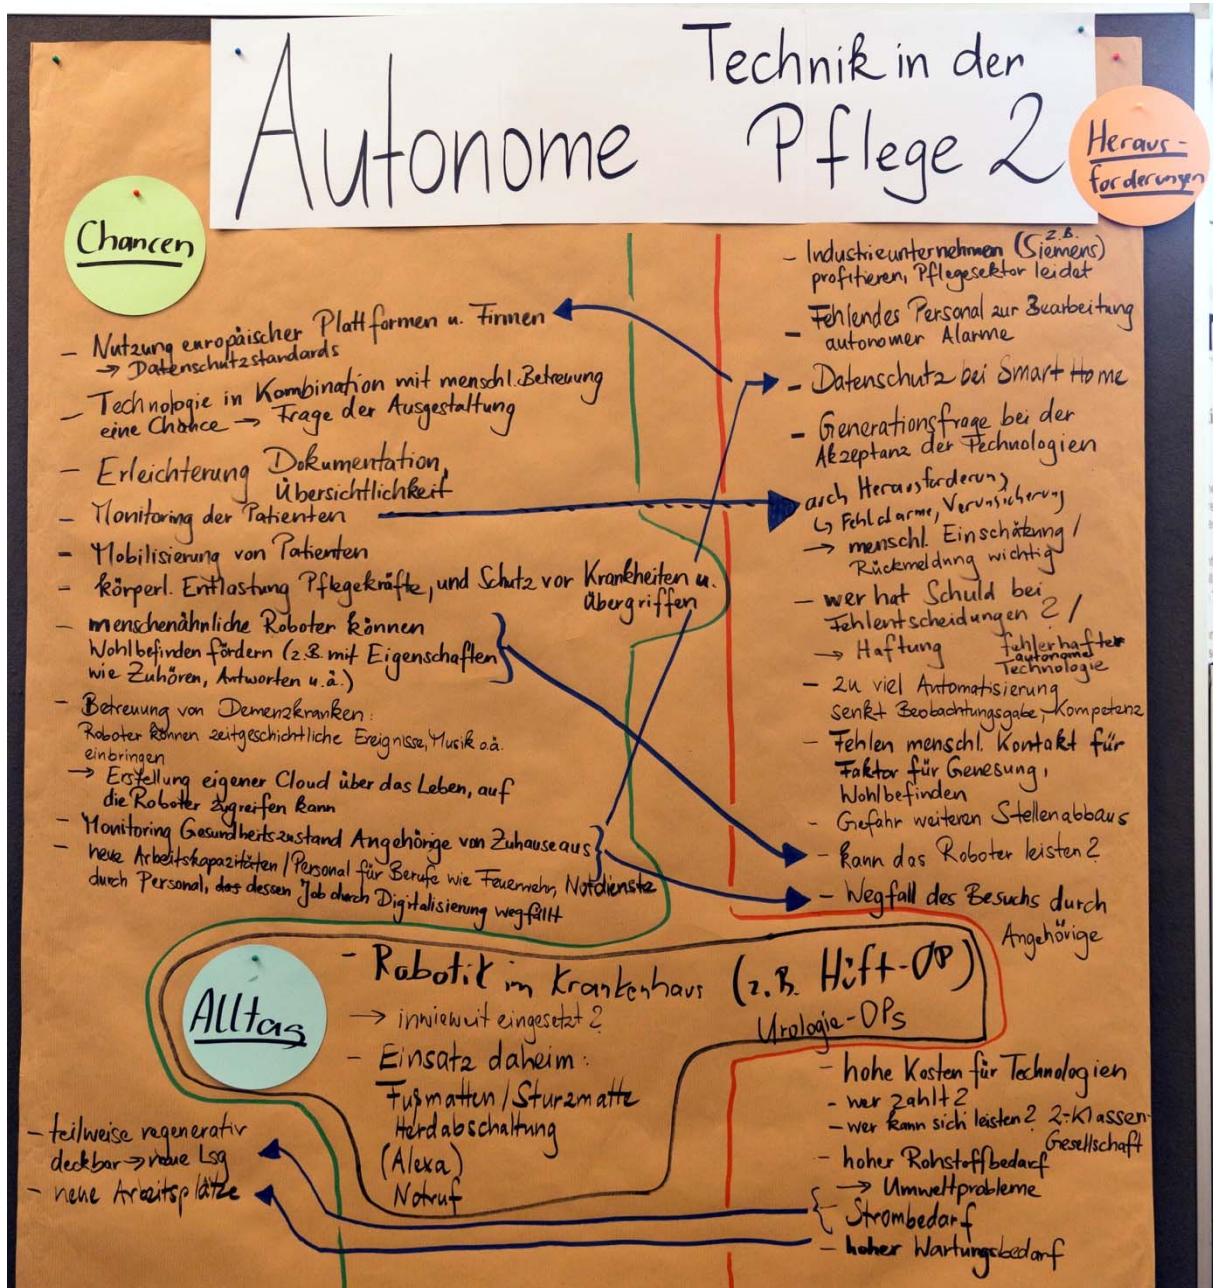 Autonome Technik in der
Pflege 2
Chancen
- Nutzung europäischer Plattformen u. Firmen
→ Datenschutzstandards
- Technologie in Kombination mit menschl. Betreuung
eine Chance → Frage der Ausgestaltung
- Erleichterung Dokumentation,
Übersichtlichkeit
- Monitoring der Patienten
- Mobilisierung von Patienten
- körperl. Entlastung Pflegekräfte, und Schutz vor Krankheiten u.
Übergriffen
- menschenähnliche Roboter können
Wohlbefinden fördern (z.B. mit Eigenschaften
wie Zuhören, Antworten u.ä.)
- Betreuung von Demenzkranken:
Roboter können zeitgeschichtliche Ereignisse, Musik o.ä.
einbringen
→ Erstellung eigener Cloud über das Leben, auf
die Roboter zugreifen kann
- Monitoring Gesundheitszustand Angehörige von Zuhause aus
- neue Arbeitskapazitäten / Personal für Berufe wie Feuerwehr, Notdienste
durch Personal, das dessen Job durch Digitalisierung wegfällt
Heraus-
forderungen
- Industrieunternehmen (z.B. Siemens)
profitieren, Pflegesektor leidet
- Fehlendes Personal zur Bearbeitung
autonomer Alarme
- Datenschutz bei Smart Home
- Generationsfrage bei der
Akzeptanz der Technologien
auch Herausforderung
↳ Fehlalarme, Verunsicherung
→ menschl. Einschätzung /
Rückmeldung wichtig
- wer hat Schuld bei
Fehlentscheidungen? /
→ Haftung fehlerhafter
autonome
Technologie
- zu viel Automatisierung
senkt Beobachtungsgabe, -Kompetenz
- Fehlen menschl. Kontakt für
Faktor für Genesung,
Wohlbefinden
- Gefahr weiteren Stellenabbaus
- kann das Roboter leisten?
- Wegfall des Besuchs durch
Angehörige
Alltag
- Robotik im Krankenhaus (z.B. Hüft-OP)
→ inwieweit eingesetzt? Urologie-OPs
- Einsatz daheim:
Fußmatten / Sturzmatte
Herdabschaltung
(Alexa)
Notruf
- teilweise regenerativ
deckbar → neue Lsg
- neue Arbeitsplätze
- hohe Kosten für Technologien
- wer zahlt?
- wer kann sich leisten? 2-Klassen-
Gesellschaft
- hoher Rohstoffbedarf
→ Umweltprobleme
- Strombedarf
- hoher Wartungsbedarf